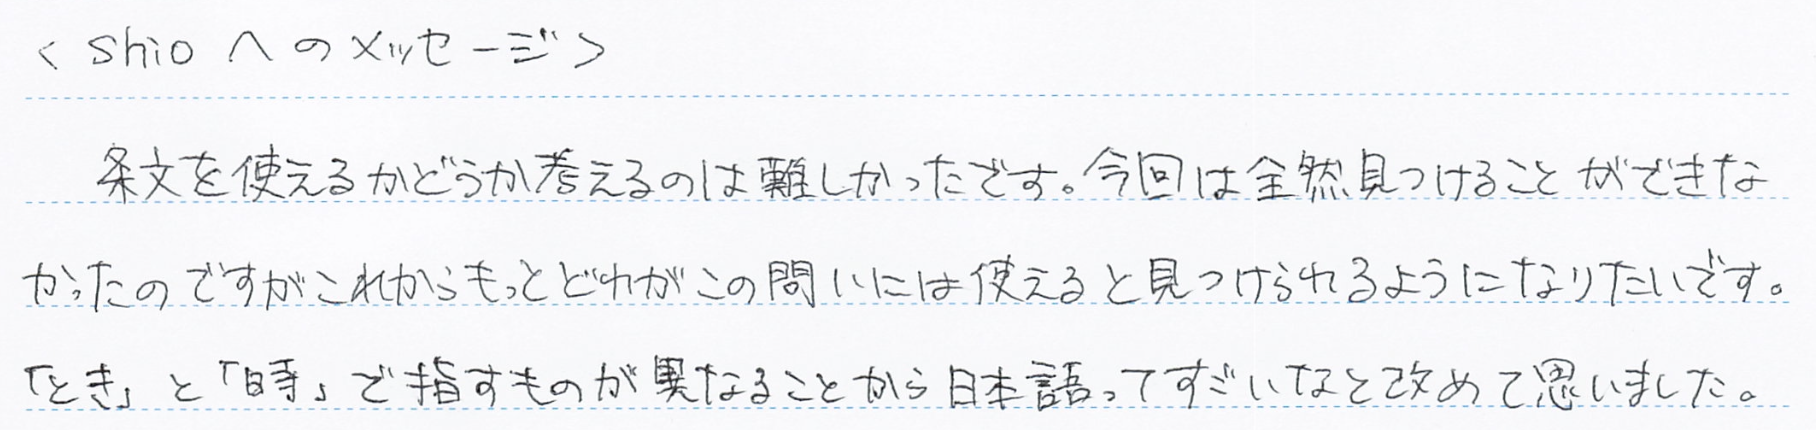 <shioへのメッセージ>
条文を使えるかどうか考えるのは難しかったです。今回は全然見つけることができな
かったのですがこれからもっとどれがこの問いには使えると見つけられるようになりたいです。
「とき」と「時」で指すものが異なることから日本語ってすごいなと改めて思いました。